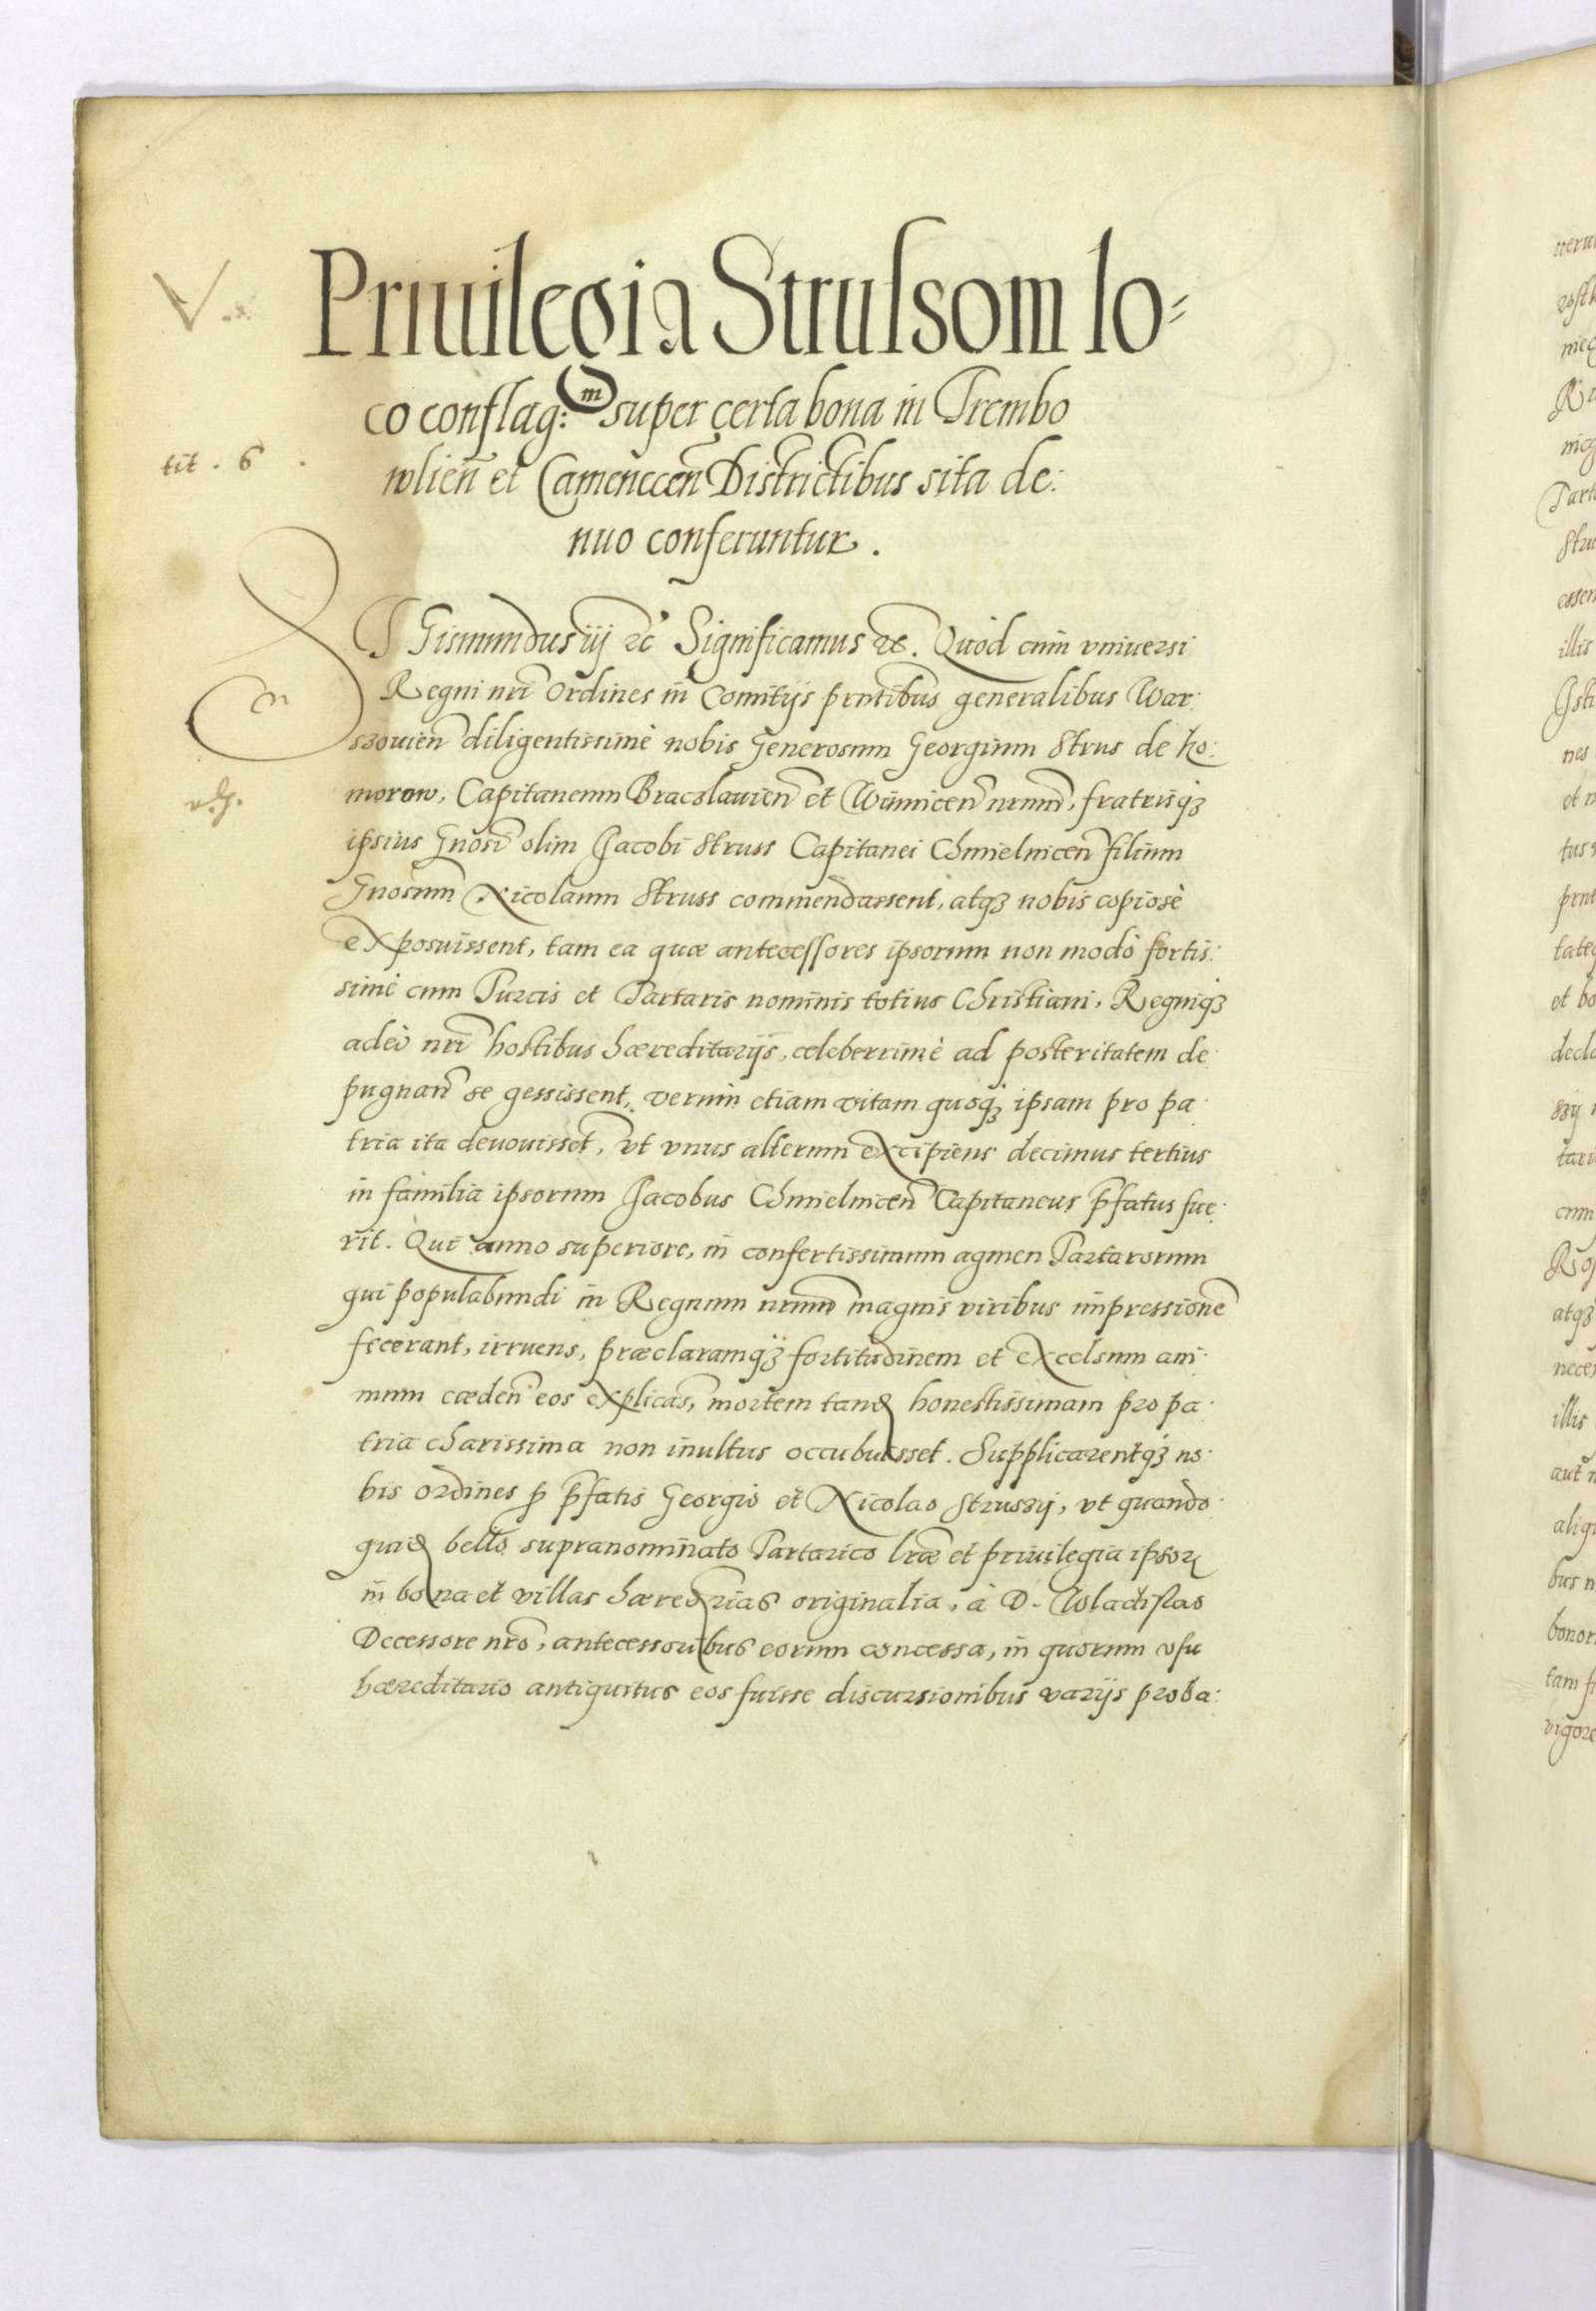 Priuilegia Strussom lo-
co conflag:m super certa bona in Trembo
wlien̄ et Camenecen̄ Districtibus sita de:
tit. 6.
nuo conferuntur.
SIGismundus iij ꝛc̄ Significamus ꝛc. Quòd cum vniuersi
Regni nr̄i Ordines in Comitijs prn̄tibus generalibus War:
szouien̄ diligentissimè nobis Generosum Georgium Strus de Ko:
morow, Capitaneum Braczlauien̄ et Winnicen̄ nrūm, fratrisqꝫ
ipsius Gnōsi olim Jacobi Struss Capitanei Chmielnicen̄ filium
Gnōsum Nicolaum Struss commendassent, atqꝫ nobis copiosè
exposuissent, tam ea quæ antecessores ipsorum non modò fortis:
simè cum Turcis et Tartaris nominis totius Christiani, Regniqꝫ
adeò nr̄i hostibus hæreditarijs, celeberrimè ad posteritatem de
pugnan̄ se gessissent, verum etiam vitam quoqꝫ ipsam pro pa
tria ita deuouisset̄, vt vnus alterum excipiens decimus tertius
in familia ipsorum Jacobus Chmielnicen̄ Capitaneus p̄fatus fue
rit. Qui anno superiore, in confertissimum agmen Tartarorum
qui populabundi in Regnum nrūm magnis viribus impressionē
fecerant, irruens, præclaramqꝫ fortitudinem et excelsum ani
mum cæden̄ eos explicas̄, mortem tandꝫ honestissimam pro pa
tria charissima non inultus occubuisset. Supplicarentqꝫ no
bis ordines ꝓ p̄fatis Georgio et Nicolao Strusszij, vt quando
quidꝫ bello supranominato Tartarico lr̄æ et priuilegia ipsoꝝ
in bona et villas hæredr̄ias originalia, à D. Wladislao
Decessore nrō, antecessoribus eorum concessa, in quorum vsu
hæreditario antiquitus eos fuisse discursionibus varijs proba: